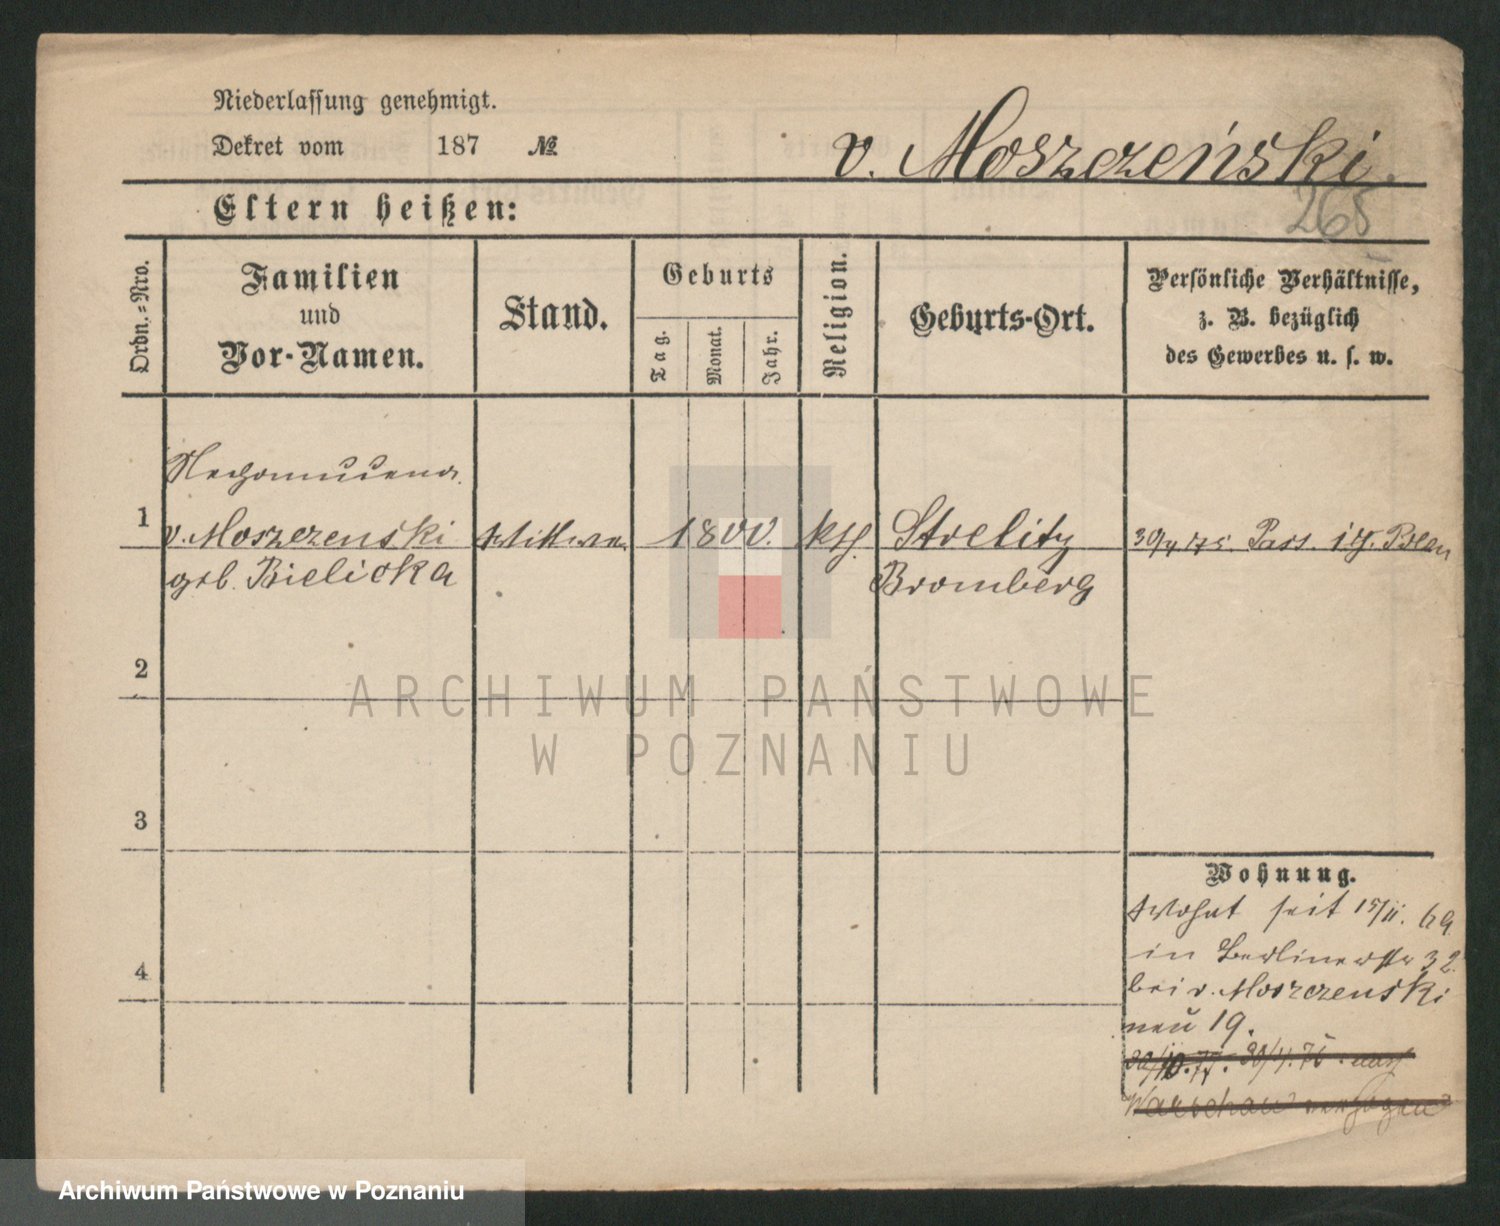 Niederlassung genehmigt.
Dekret vom 187 №
v. Moszczeński.
265
Eltern heißen:
Ordn.-Nro.
Familien
und
Vor-Namen.
Stand.
Geburts
Tag.
Monat.
Jahr.
Religion.
Geburts-Ort.
Persönliche Verhältnisse,
z. B. bezüglich
des Gewerbes u. s. w.
Nepomucena
1 v. Moszczenski Wittwe 1800. kth. Strelitz 30/4 75. Pass. 1 J.
geb. Bielicka Bromberg
2
3
4
Wohnung.
Wohnt seit 15/II. 69
in Berlinerstr 32.
bei v. Moszczenski
neu 19.
30/4. 75 nach
Warschau verzogen
ARCHIWUM PAŃSTWOWE
W POZNANIU
Archiwum Państwowe w Poznaniu